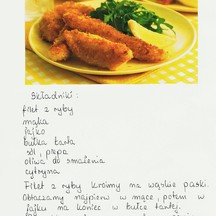 Składniki:
filet z ryby
mąka
jajko
bułka tarta
sól, pieprz
oliwa do smażenia
cytryna
Filet z ryby kroimy na wąskie paski.
Obtaczamy najpierw w mące, potem w
jajku na koniec w bułce tartej.